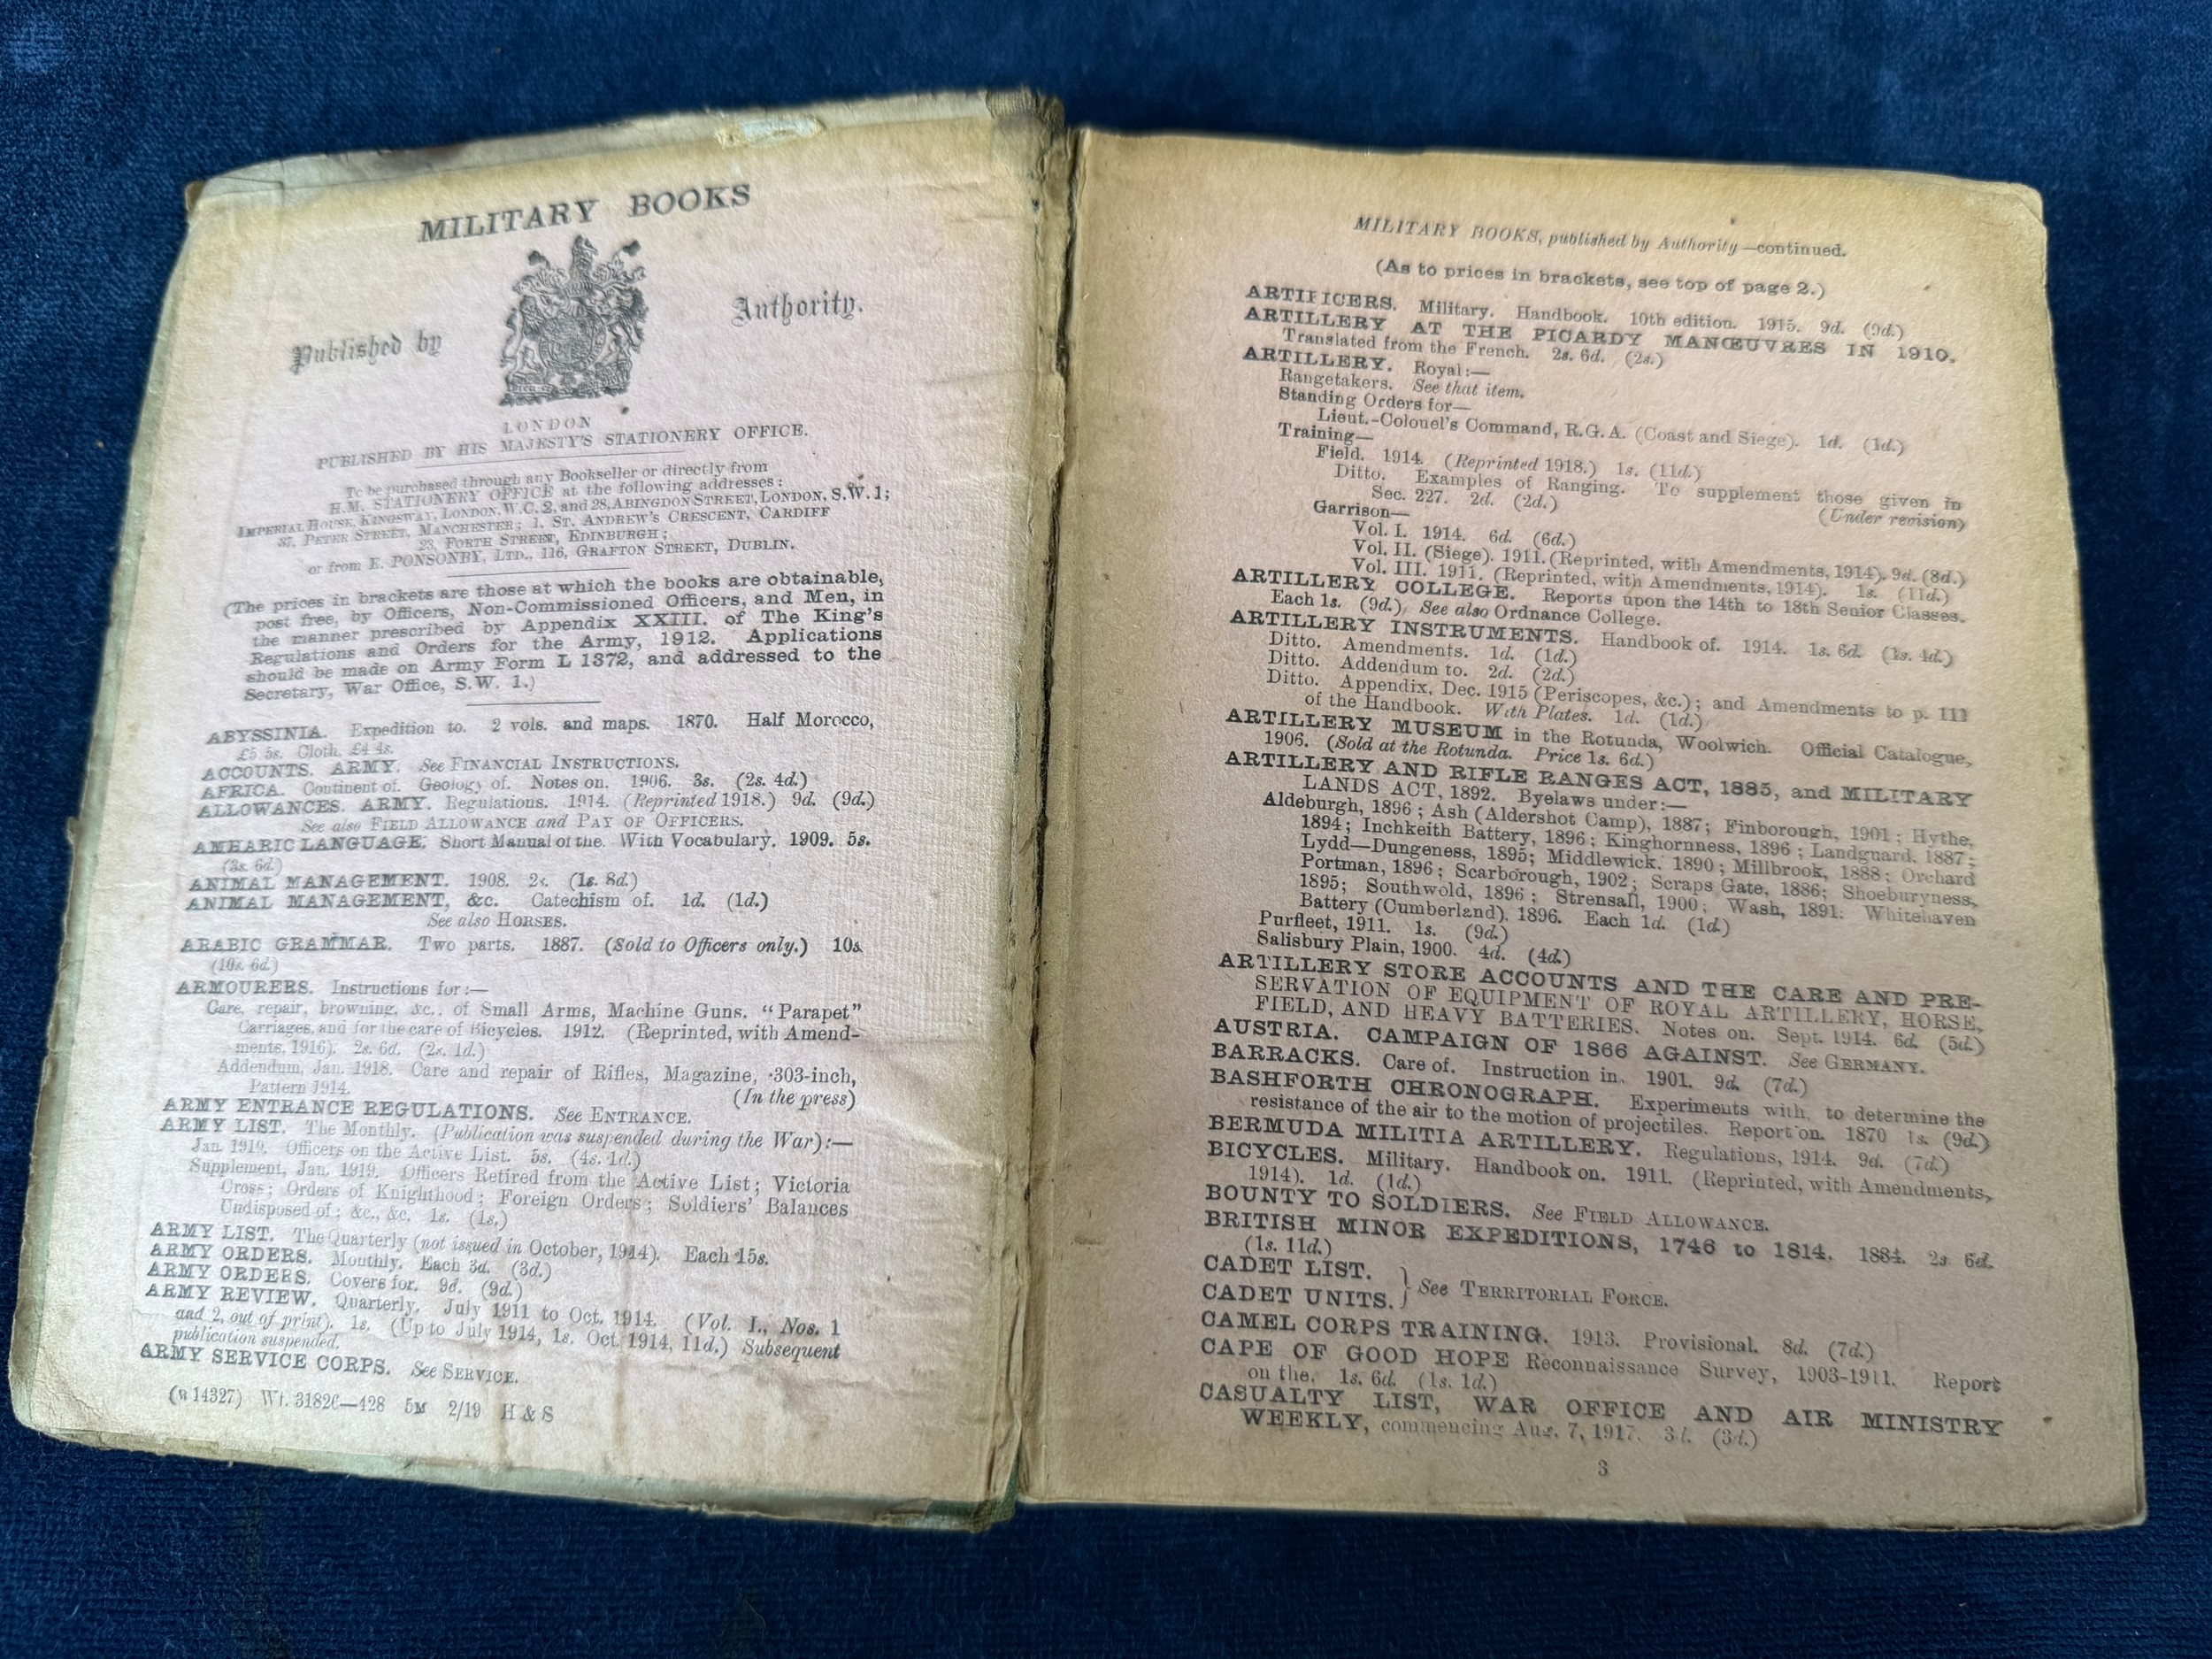 MILITARY BOOKS
Published by Authority.
LONDON
PUBLISHED BY HIS MAJESTY'S STATIONERY OFFICE.
To be purchased through any Bookseller or directly from
H.M. STATIONERY OFFICE at the following addresses:
IMPERIAL HOUSE, KINGSWAY, LONDON, W.C. 2, and 28, ABINGDON STREET, LONDON, S.W. 1;
37, PETER STREET, MANCHESTER; 1, ST. ANDREW'S CRESCENT, CARDIFF
23, FORTH STREET, EDINBURGH;
or from E. PONSONBY, LTD., 116, GRAFTON STREET, DUBLIN.
(The prices in brackets are those at which the books are obtainable,
post free, by Officers, Non-Commissioned Officers, and Men, in
the manner prescribed by Appendix XXIII. of The King's
Regulations and Orders for the Army, 1912. Applications
should be made on Army Form L 1372, and addressed to the
Secretary, War Office, S.W. 1.)
ABYSSINIA. Expedition to. 2 vols. and maps. 1870. Half Morocco,
£5 5s. Cloth, £4 4s.
ACCOUNTS. ARMY. See FINANCIAL INSTRUCTIONS.
AFRICA. Continent of. Geology of. Notes on. 1906. 3s. (2s. 4d.)
ALLOWANCES. ARMY. Regulations. 1914. (Reprinted 1918.) 9d. (9d.)
See also FIELD ALLOWANCE and PAY OF OFFICERS.
AMHARIC LANGUAGE. Short Manual of the. With Vocabulary. 1909. 5s.
(3s. 6d.)
ANIMAL MANAGEMENT. 1908. 2s. (1s. 8d.)
ANIMAL MANAGEMENT, &c. Catechism of. 1d. (1d.)
See also HORSES.
ARABIC GRAMMAR. Two parts. 1887. (Sold to Officers only.) 10s.
(10s. 6d.)
ARMOURERS. Instructions for:—
Care, repair, browning, &c., of Small Arms, Machine Guns. "Parapet"
Carriages, and for the care of Bicycles. 1912. (Reprinted, with Amend-
ments, 1916). 2s. 6d. (2s. 1d.)
Addendum, Jan. 1918. Care and repair of Rifles, Magazine, ·303-inch,
Pattern 1914. (In the press)
ARMY ENTRANCE REGULATIONS. See ENTRANCE.
ARMY LIST. The Monthly. (Publication was suspended during the War):—
Jan. 1919. Officers on the Active List. 5s. (4s. 1d.)
Supplement, Jan. 1919. Officers Retired from the Active List; Victoria
Cross; Orders of Knighthood; Foreign Orders; Soldiers' Balances
Undisposed of; &c., &c. 1s. (1s.)
ARMY LIST. The Quarterly (not issued in October, 1914). Each 15s.
ARMY ORDERS. Monthly. Each 3d. (3d.)
ARMY ORDERS. Covers for. 9d. (9d.)
ARMY REVIEW. Quarterly. July 1911 to Oct. 1914. (Vol. I., Nos. 1
and 2, out of print). 1s. (Up to July 1914, 1s. Oct. 1914, 11d.) Subsequent
publication suspended.
ARMY SERVICE CORPS. See SERVICE.
(B 14327) Wt. 31826—428 5M 2/19 H & S
MILITARY BOOKS, published by Authority—continued.
(As to prices in brackets, see top of page 2.)
ARTIFICERS. Military. Handbook. 10th edition. 1915. 9d. (9d.)
ARTILLERY AT THE PICARDY MANŒUVRES IN 1910.
Translated from the French. 2s. 6d. (2s.)
ARTILLERY. Royal:—
Rangetakers. See that item.
Standing Orders for—
Lieut.-Colonel's Command, R.G.A. (Coast and Siege). 1d. (1d.)
Training—
Field. 1914. (Reprinted 1918.) 1s. (11d.)
Ditto. Examples of Ranging. To supplement those given in
Sec. 227. 2d. (2d.) (Under revision)
Garrison—
Vol. I. 1914. 6d. (6d.)
Vol. II. (Siege). 1911. (Reprinted, with Amendments, 1914). 9d. (8d.)
Vol. III. 1911. (Reprinted, with Amendments, 1914). 1s. (11d.)
ARTILLERY COLLEGE. Reports upon the 14th to 18th Senior Classes.
Each 1s. (9d.) See also Ordnance College.
ARTILLERY INSTRUMENTS. Handbook of. 1914. 1s. 6d. (1s. 4d.)
Ditto. Amendments. 1d. (1d.)
Ditto. Addendum to. 2d. (2d.)
Ditto. Appendix, Dec. 1915 (Periscopes, &c.); and Amendments to p. 111
of the Handbook. With Plates. 1d. (1d.)
ARTILLERY MUSEUM in the Rotunda, Woolwich. Official Catalogue,
1906. (Sold at the Rotunda. Price 1s. 6d.)
ARTILLERY AND RIFLE RANGES ACT, 1885, and MILITARY
LANDS ACT, 1892. Byelaws under:—
Aldeburgh, 1896; Ash (Aldershot Camp), 1887; Finborough, 1901; Hythe,
1894; Inchkeith Battery, 1896; Kinghornness, 1896; Landguard, 1887;
Lydd—Dungeness, 1895; Middlewick, 1890; Millbrook, 1888; Orchard
Portman, 1896; Scarborough, 1902; Scraps Gate, 1886; Shoeburyness,
1895; Southwold, 1896; Strensall, 1900; Wash, 1891; Whitehaven
Battery (Cumberland). 1896. Each 1d. (1d.)
Purfleet, 1911. 1s. (9d.)
Salisbury Plain, 1900. 4d. (4d.)
ARTILLERY STORE ACCOUNTS AND THE CARE AND PRE-
SERVATION OF EQUIPMENT OF ROYAL ARTILLERY, HORSE,
FIELD, AND HEAVY BATTERIES. Notes on. Sept. 1914. 6d. (5d.)
AUSTRIA. CAMPAIGN OF 1866 AGAINST. See GERMANY.
BARRACKS. Care of. Instruction in. 1901. 9d. (7d.)
BASHFORTH CHRONOGRAPH. Experiments with, to determine the
resistance of the air to the motion of projectiles. Report on. 1870 1s. (9d.)
BERMUDA MILITIA ARTILLERY. Regulations, 1914. 9d. (7d.)
BICYCLES. Military. Handbook on. 1911. (Reprinted, with Amendments,
1914). 1d. (1d.)
BOUNTY TO SOLDIERS. See FIELD ALLOWANCE.
BRITISH MINOR EXPEDITIONS, 1746 to 1814. 1884. 2s 6d.
(1s. 11d.)
CADET LIST.
CADET UNITS. } See TERRITORIAL FORCE.
CAMEL CORPS TRAINING. 1913. Provisional. 8d. (7d.)
CAPE OF GOOD HOPE Reconnaissance Survey, 1903-1911. Report
on the. 1s. 6d. (1s. 1d.)
CASUALTY LIST, WAR OFFICE AND AIR MINISTRY
WEEKLY, commencing Aug. 7, 1917. 3d. (3d.)
3